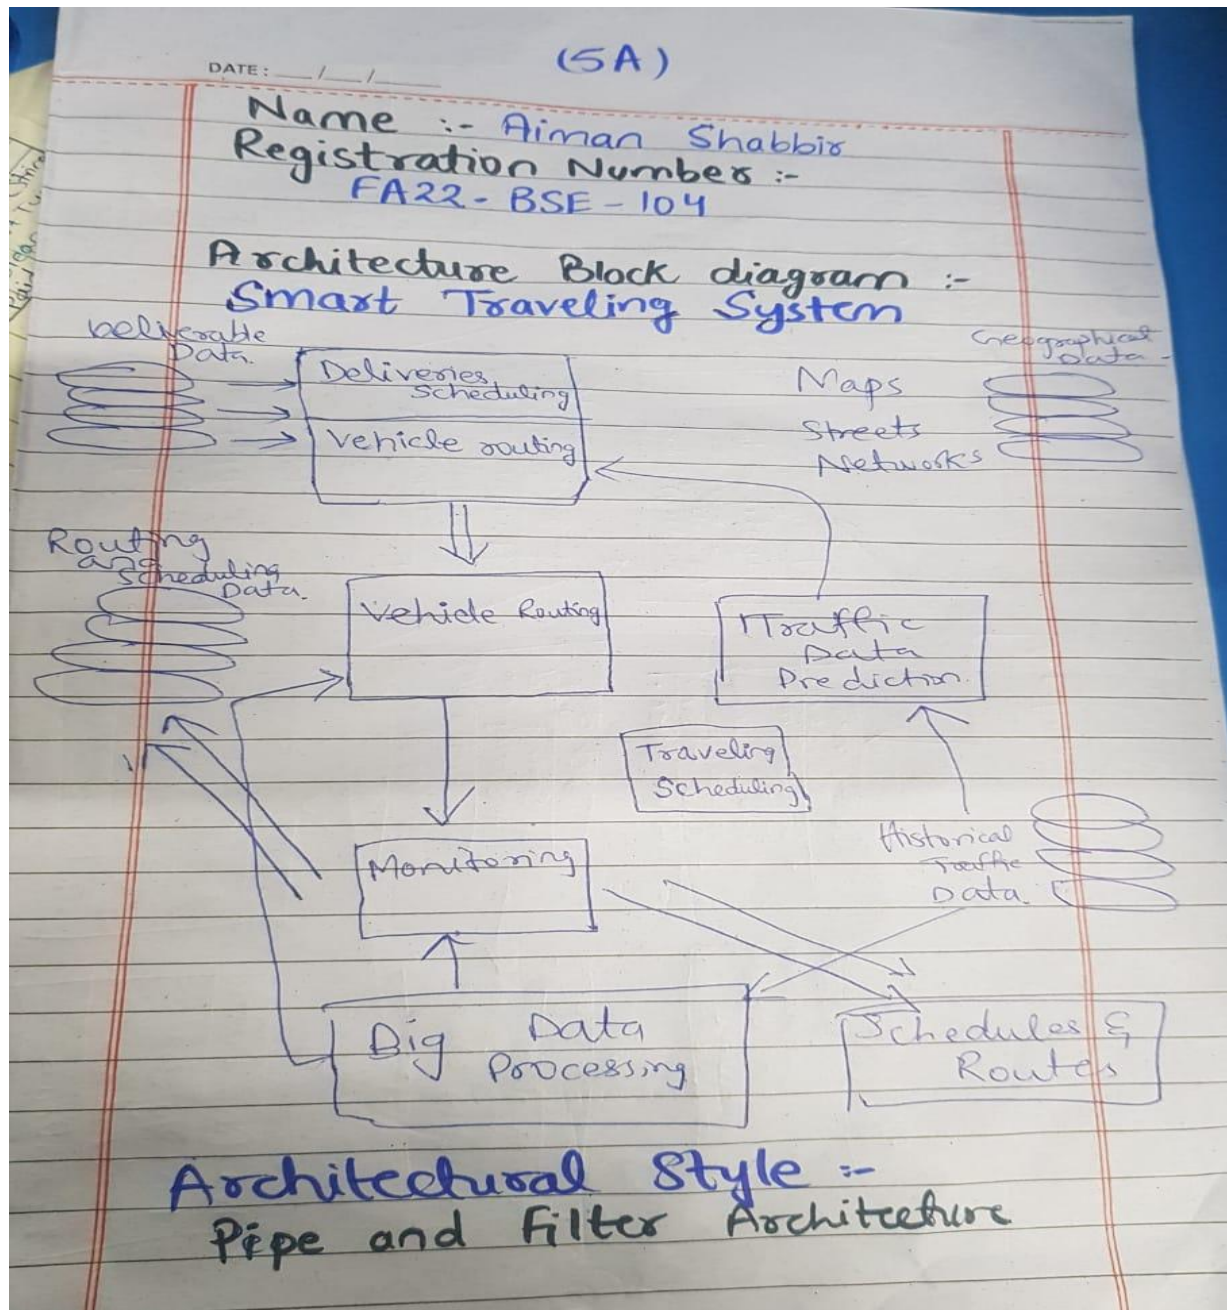 (5A)
DATE: __/__/____
Name :- Aiman Shabbir
Registration Number :-
FA22- BSE - 104
Architecture Block diagram :-
Smart Traveling System
Deliverable
Data.
Deliveries
Scheduling
Vehicle routing
Maps
Streets
Networks
Geographical
Data
Routing
and
Scheduling
Data.
Vehicle Routing
Traffic
Data
Prediction.
Traveling
Scheduling
Monitoring
Historical
Traffic
Data.
Big Data
Processing
Schedules &
Routes
Architectural Style :-
Pipe and Filter Architecture